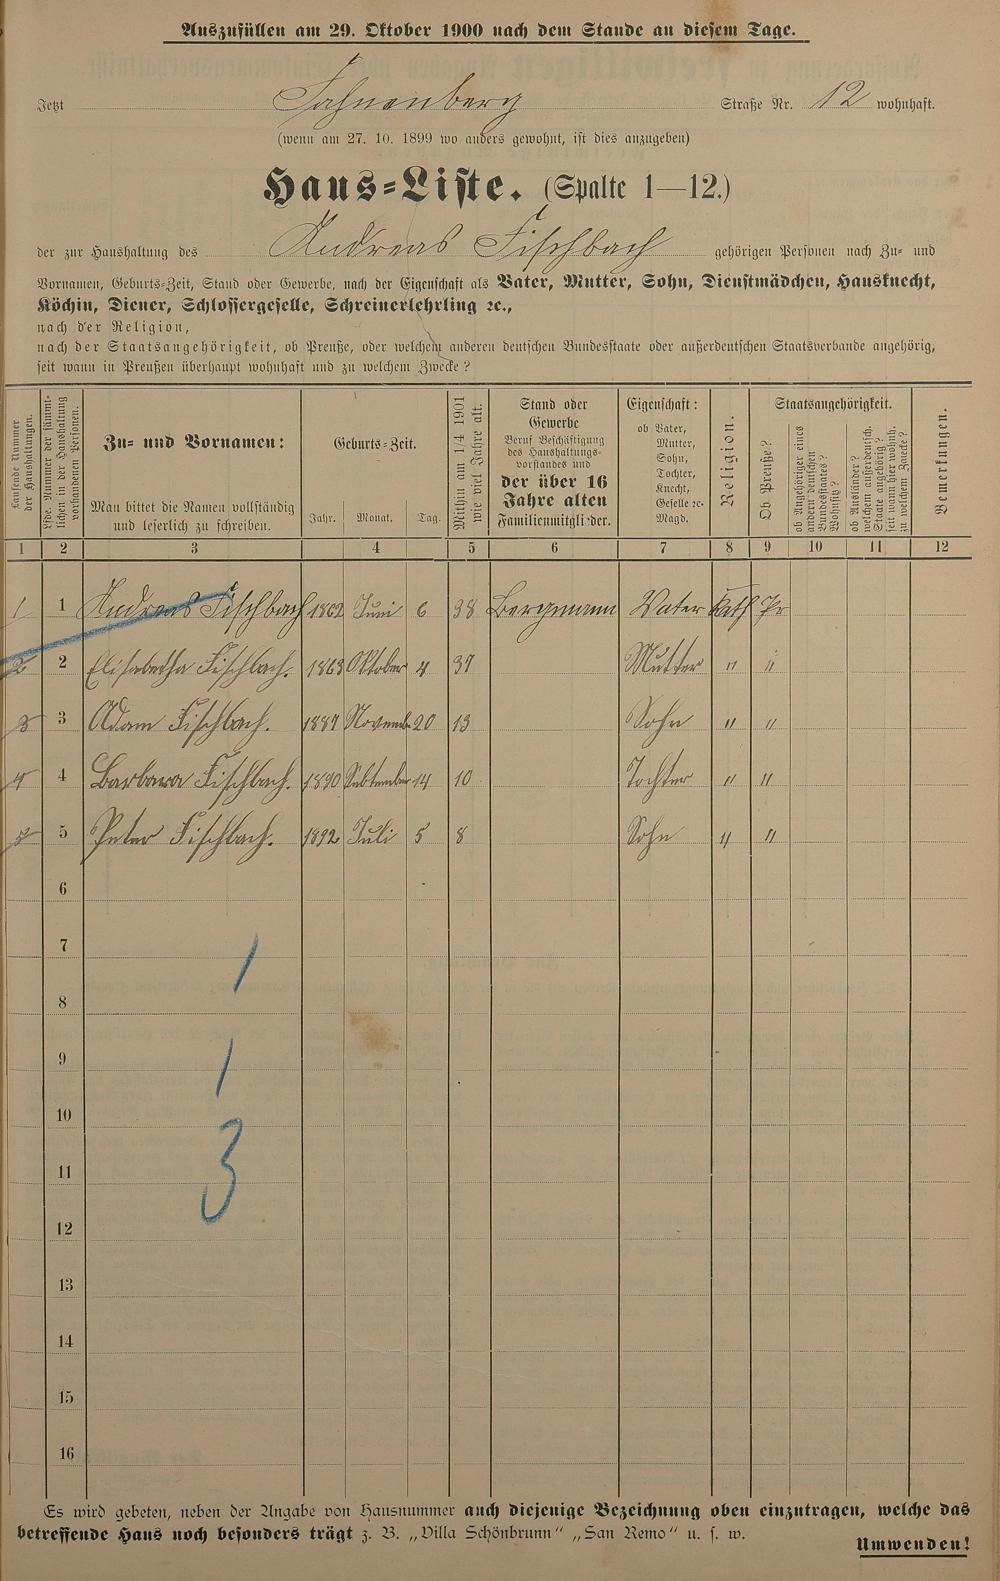 Auszufüllen am 29. Oktober 1900 nach dem Stande an diesem Tage.
Jetzt Fahnenberg Straße Nr. 12 wohnhaft.
(wenn am 27. 10. 1899 wo anders gewohnt, ist dies anzugeben)
Haus-Liste. (Spalte 1—12.)
der zur Haushaltung des Andreas Fischbach gehörigen Personen nach Zu- und
Vornamen, Geburts-Zeit, Stand oder Gewerbe, nach der Eigenschaft als Vater, Mutter, Sohn, Dienstmädchen, Hausknecht,
Köchin, Diener, Schlossergeselle, Schreinerlehrling ꝛc.,
nach der Religion,
nach der Staatsangehörigkeit, ob Preuße, oder welchem anderen deutschen Bundesstaate oder außerdeutschen Staatsverbande angehörig,
seit wann in Preußen überhaupt wohnhaft und zu welchem Zwecke?
Laufende Nummer der Haushaltungen.
Lfde. Nummer der sämmtlichen in der Haushaltung vorhandenen Personen.
Zu- und Vornamen:
Man bittet die Namen vollständig
und leserlich zu schreiben.
Geburts-Zeit.
Jahr. Monat. Tag.
Mithin am 1/4 1901
wie viel Jahre alt.
Stand oder
Gewerbe
Beruf Beschäftigung
des Haushaltungs-
vorstandes und
der über 16
Jahre alten
Familienmitglieder.
Eigenschaft:
ob Vater,
Mutter,
Sohn,
Tochter,
Knecht,
Geselle ꝛc.
Magd.
Religion.
Staatsangehörigkeit.
Ob Preuße?
ob Angehöriger eines
andern deutschen
Bundesstaates?
Wohnsitz?
ob Ausländer?
welchem außerdeutsch.
Staate angehörig?
seit wann hier wohnh.
zu welchem Zwecke?
Bemerkungen.
1 2 3 4 5 6 7 8 9 10 11 12
1 1 Andreas Fischbach 1862 Juni 6 38 Bergmann Vater Kath Pr
2 2 Elisabetha Fischbach. 1863 Oktober 4 37 Mutter " "
3 3 Adam Fischbach. 1887 Novemb. 20 13 Sohn " "
4 4 Barbara Fischbach. 1890 Sebtember 14 10 Tochter " "
5 5 Peter Fischbach. 1892 Juli 5 8 Sohn " "
6
7
1
8
9
1
10
3
11
12
13
14
15
16
Es wird gebeten, neben der Angabe von Hausnummer auch diejenige Bezeichnung oben einzutragen, welche das
betreffende Haus noch besonders trägt z. B. „Villa Schönbrunn" „San Remo" u. s. w.
Umwenden!